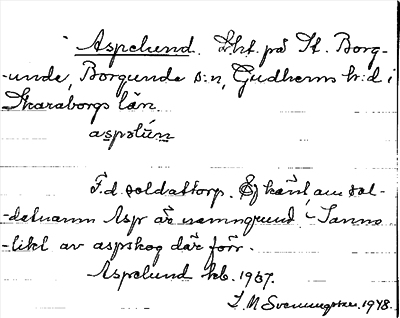 Aspelund. Lht. på St. Borg-
-unde, Borgunde s:n, Gudhems h:d i
Skaraborgs län.
aspəlún
F.d. soldattorp. Ej känt, om sol-
-datnamn Asp är namngrund. Sanno-
-likt av aspskog där förr.
Aspelund kb. 1967.
I M Svenungsson. 1948.